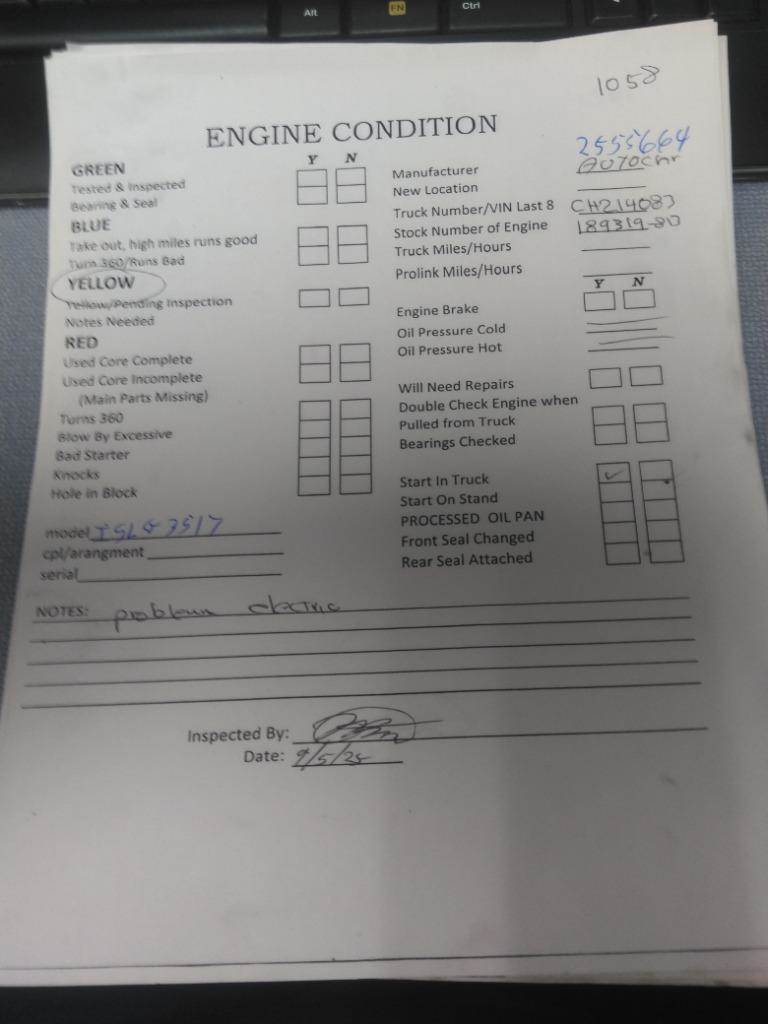 Alt FN Ctrl
1058
ENGINE CONDITION
2555664
Y N
GREEN
Tested & Inspected
Bearing & Seal
BLUE
Take out, high miles runs good
Turn 360/Runs Bad
YELLOW
Yellow/Pending Inspection
Notes Needed
RED
Used Core Complete
Used Core Incomplete
(Main Parts Missing)
Turns 360
Blow By Excessive
Bad Starter
Knocks
Hole in Block
model ISLG 3517
cpl/arangment
serial
Manufacturer
New Location
Truck Number/VIN Last 8 CH214083
Stock Number of Engine 189319-80
Truck Miles/Hours
Prolink Miles/Hours
Y N
Engine Brake
Oil Pressure Cold
Oil Pressure Hot
Will Need Repairs
Double Check Engine when
Pulled from Truck
Bearings Checked
Start In Truck ✓
Start On Stand
PROCESSED OIL PAN
Front Seal Changed
Rear Seal Attached
NOTES: problem electric
Inspected By:
Date: 9/5/25